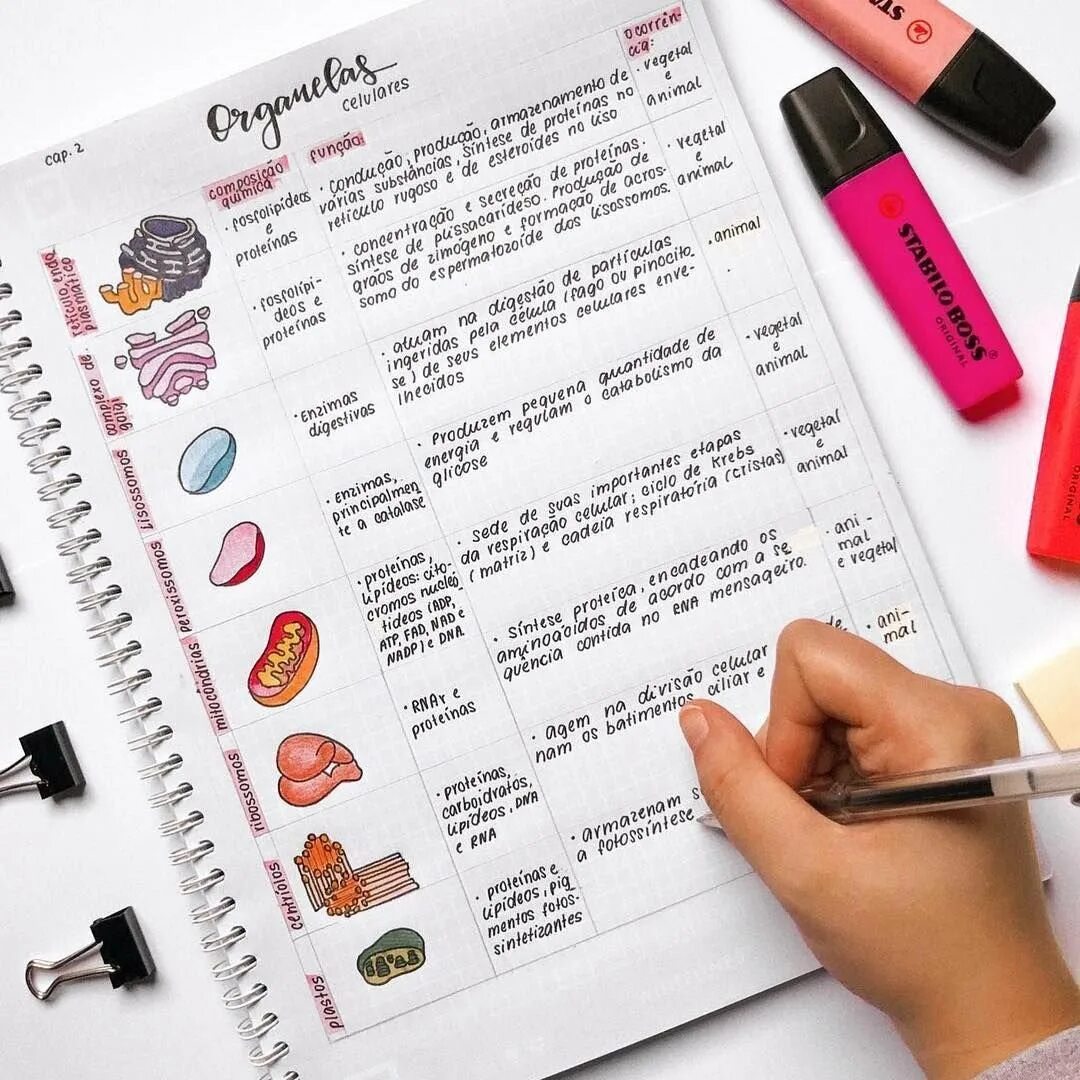 cap. 2
Organelas
celulares
composição
química
função:
ocorrên-
cia:
retículo endo
plasmático
· fosfolipídeos
e
proteínas
· condução, produção, armazenamento de
várias substâncias, síntese de proteínas no
retículo rugoso e de esteroides no liso
· vegetal
e
animal
complexo de
golgi
· fosfolipí-
deos e
proteínas
· concentração e secreção de proteínas.
síntese de polissacarídeso. Produção de
grãos de zimogeno e formação de acros-
somo do espermatozoide dos lisossomos.
· vegetal
e
animal
lisossomos
· Enzimas
digestivas
· atuam na digestão de partículas
ingeridas pela célula (fago ou pinocito
se) de seus elementos celulares enve-
lhecidos
· animal
peroxissomos
· enzimas,
principalmen
te a catalase
· Produzem pequena quantidade de
energia e regulam o catabolismo da
glicose
· vegetal
e
animal
mitocôndrias
· proteínas,
lipídeos: cito-
cromos nucleó
tideos (ADP,
ATP, FAD, NAD e
NADP) e DNA
· sede de suas importantes etapas
da respiração celular; ciclo de Krebs
(matriz) e cadeia respiratória (cristas)
· vegetal
e
animal
ribossomos
· RNAr e
proteínas
· síntese proteica, encadeando os
aminoácidos de acordo com a se
quência contida no RNA mensageiro.
· ani-
mal
e vegetal
centríolos
· proteínas,
carboidratos,
lipídeos, DNA
e RNA
· agem na divisão celular
nam os batimentos ciliar e
de
· ani-
mal
plastos
· proteínas e
lipídeos, pig
mentos fotos-
sintetizantes
· armazenam s
a fotossíntese
STABILO BOSS®
ORIGINAL
STAB
ORIGINAL